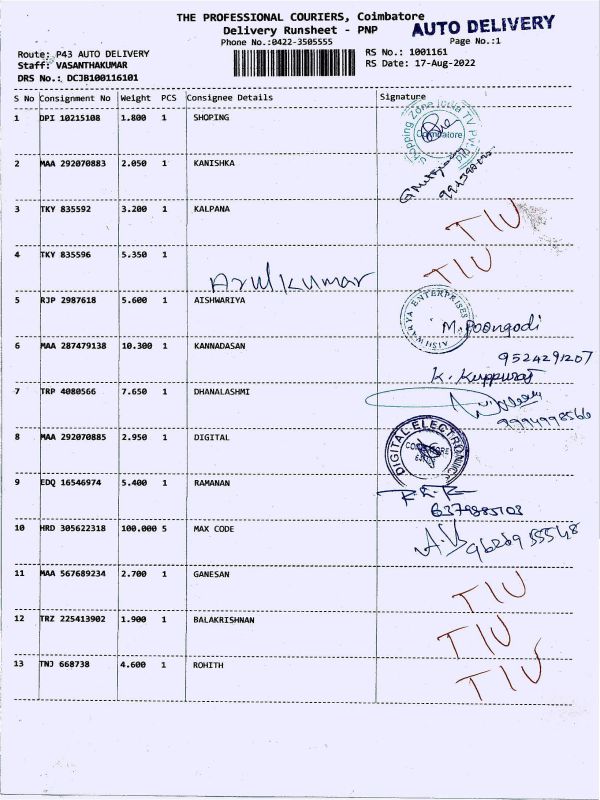 THE PROFESSIONAL COURIERS, Coimbatore
Delivery Runsheet - PNP
AUTO DELIVERY
Phone No.:0422-3505555
Page No.:1
Route: P43 AUTO DELIVERY
RS No.: 1001161
Staff: VASANTHAKUMAR
RS Date: 17-Aug-2022
DRS No.: DCJB100116101
S No Consignment No Weight PCS Consignee Details Signature
1 DPI 10215108 1.800 1 SHOPING
Shopping Zone India TV Pvt Ltd
Coimbatore
2 MAA 292070883 2.050 1 KANISHKA
3 TKY 835592 3.200 1 KALPANA
TIU
4 TKY 835596 5.350 1
TIU
Arulkumar
5 RJP 2987618 5.600 1 AISHWARIYA
AISHWARYA ENTERPRISES
M. Poongodi
6 MAA 287479138 10.300 1 KANNADASAN
9524291207
K. Kuppuraj
7 TRP 4080566 7.650 1 DHANALASHMI
9994998566
8 MAA 292070885 2.950 1 DIGITAL
DIGITAL ELECTRONICS
9 EDQ 16546974 5.400 1 RAMANAN
6379885103
10 HRD 305622318 100.000 5 MAX CODE
11 MAA 567689234 2.700 1 GANESAN
TIU
12 TRZ 225413902 1.900 1 BALAKRISHNAN
TIU
13 TNJ 668738 4.600 1 ROHITH
TIU